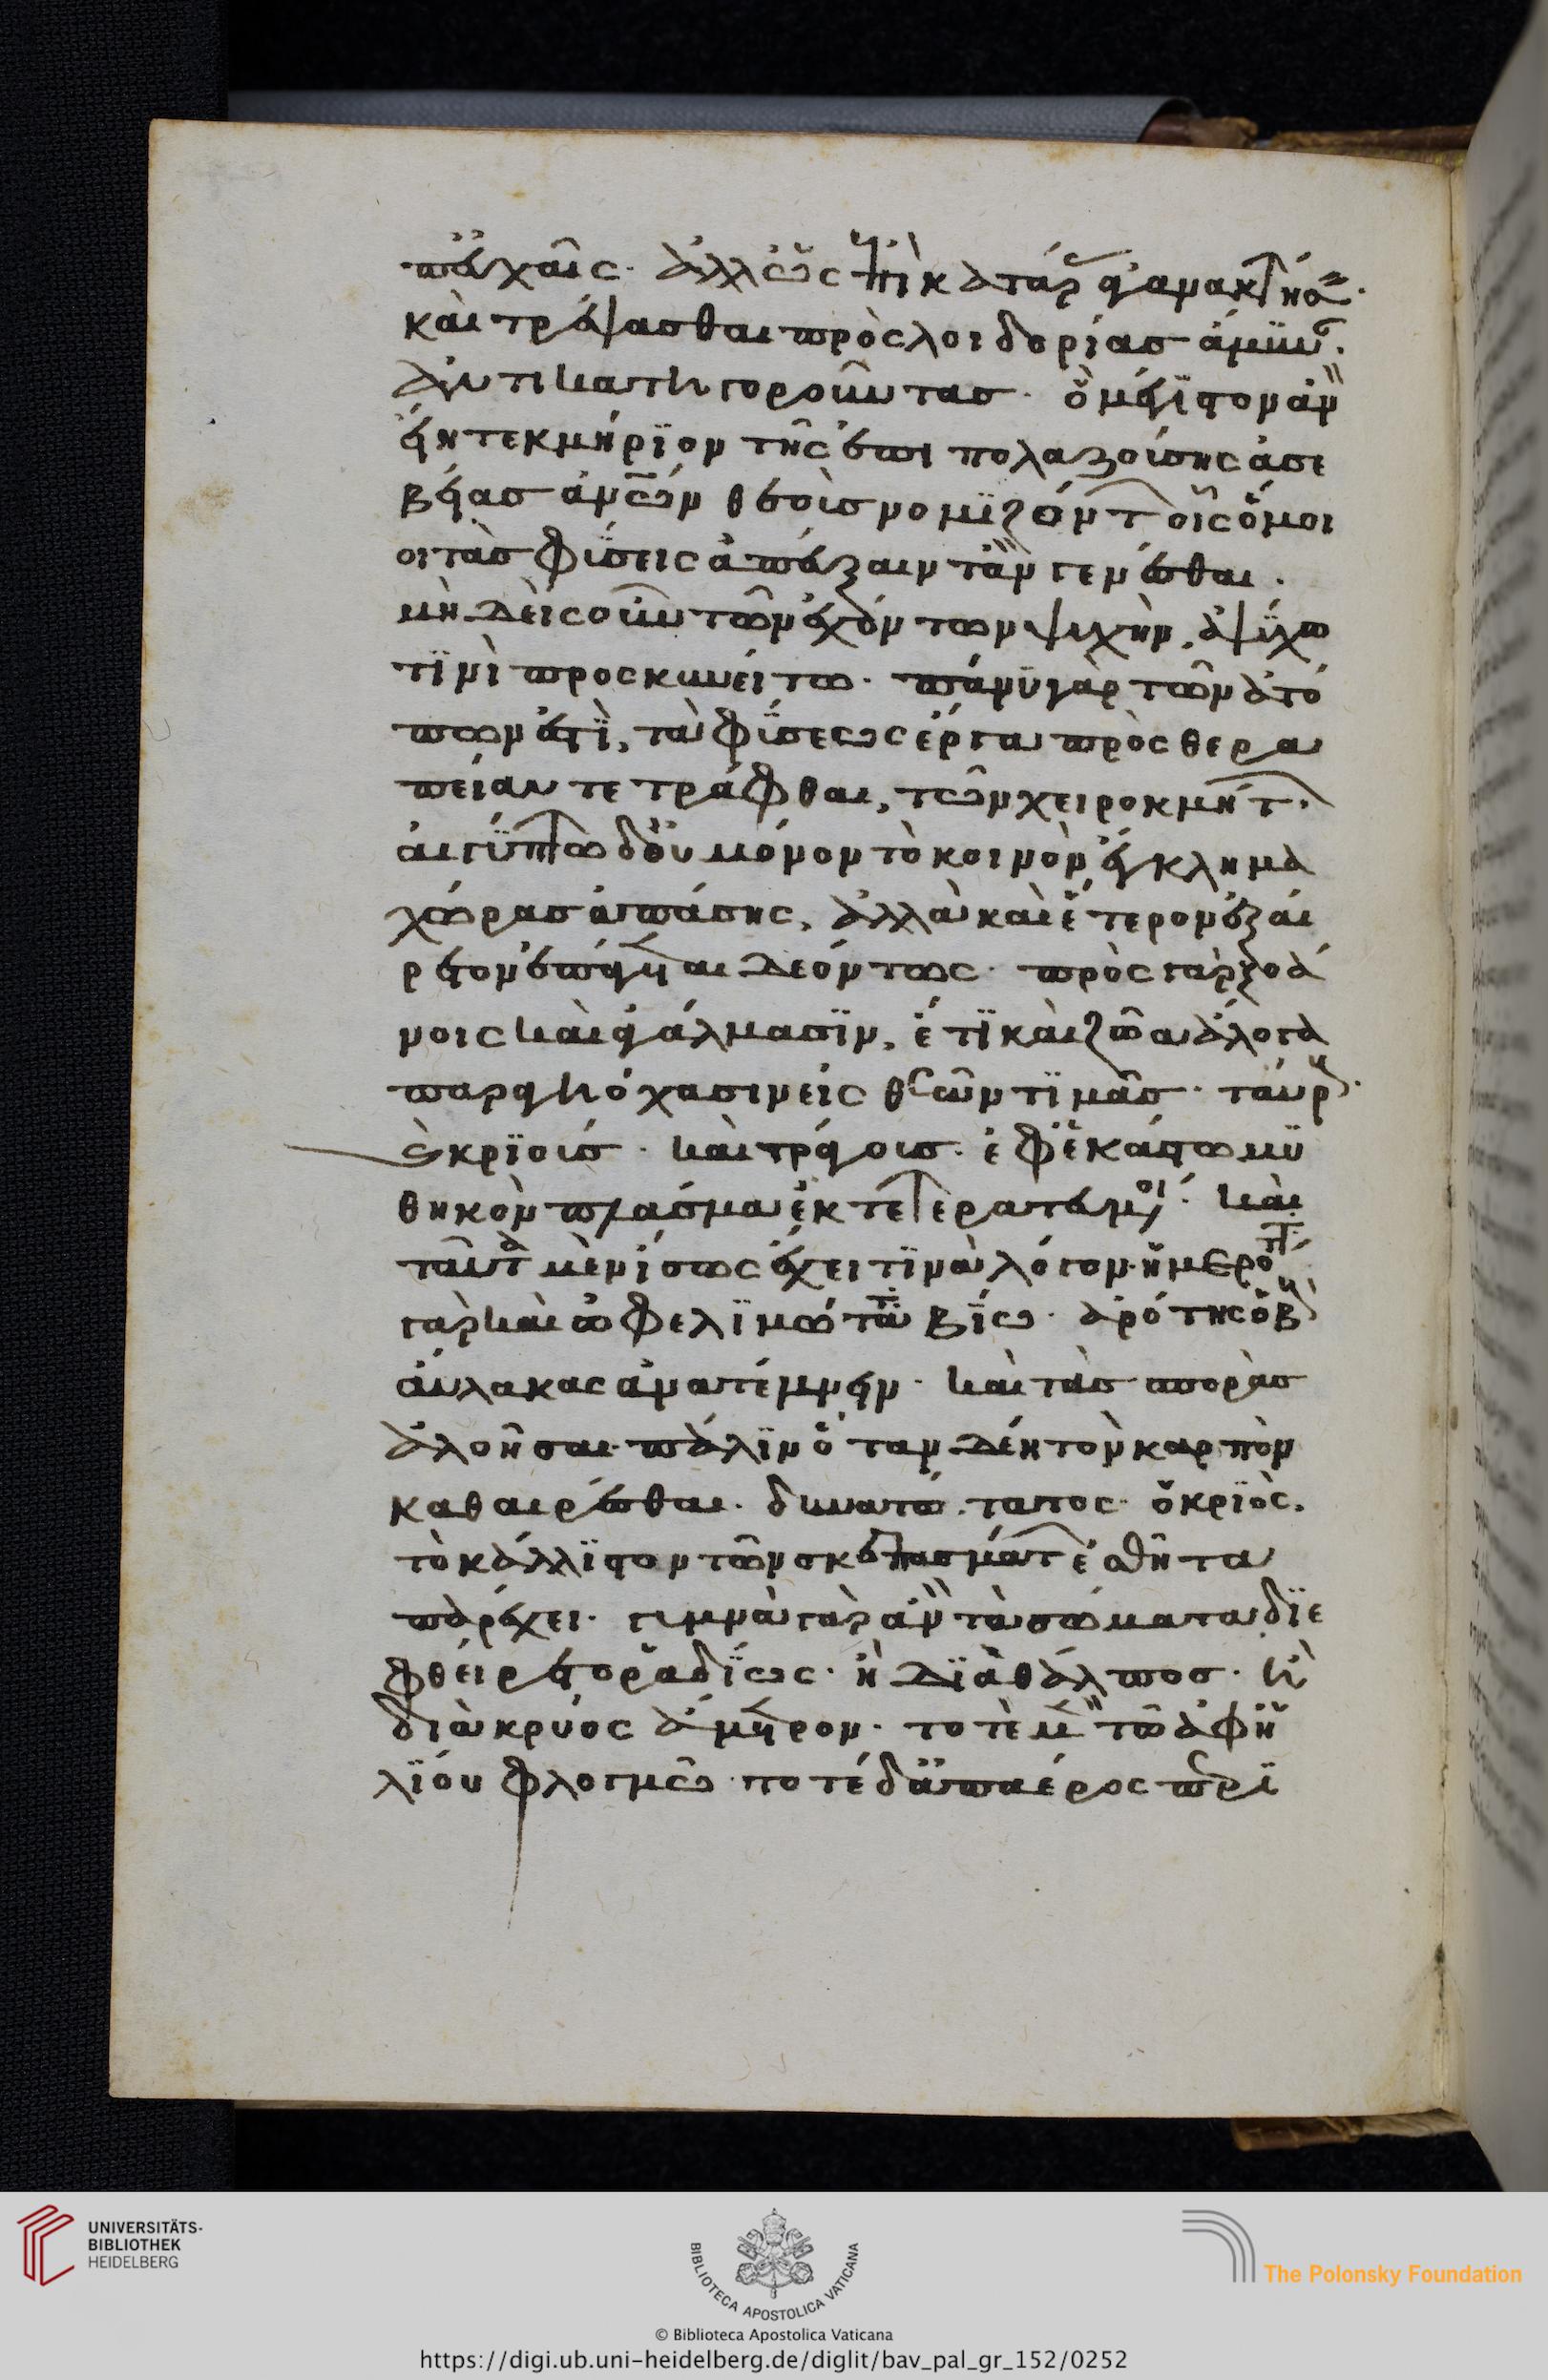 εὐχαῖς· ἀλλ' ὡς ἐπὶ κατάρᾳ ἀγανακτῆσαι·
καὶ τρέψασθαι πρὸς λοιδορίας ἀμύνης·
ἀντικατηγοροῦντας· ὃ μέγιστον ἂν
εἴη τεκμήριον τῆς ἐπιπολαζούσης ἀσε
βείας ἀνῶν θεοὺς νομιζόντων οἷς ὅμοι
οι τὰς φύσεις ἀπεύξαιντ' ἂν γενέσθαι·
μηδεὶς οὖν τῶν ἐχόντων ψυχὴν, ἀψύχω
τινὶ προσκυνείτω· πάνυ γὰρ τῶν ἀτό
πων ἐστὶ, τὰ φύσεως ἔργα πρὸς θερα
πείαν τετράφθαι, τῶν χειροκμήτων·
αἰγυπτίω δ' οὐ μόνον τὸ κοινὸν ἔγκλημα
χώρας ἁπάσης, ἀλλὰ καὶ ἕτερον ἐξαί
ρετον ἐπῆκται δεόντως· πρὸς γὰρ ξοά
νοις καὶ ἀγάλμασιν, ἔτι καὶ ζῶα ἄλογα
παραγηόχασιν εἰς θεῶν τιμὰς· ταύρους·
καὶ κριοὺς· καὶ τράγους· ἐφ' ἑκάστω μυ
θικὸν πλάσμα ἐκτετερατευμένοι· καὶ
ταῦτα μὲν ἴσως ἔχει τινὰ λόγον· ἡμερώτατα
γὰρ καὶ ὠφελιμώτατα βίω· ἀρότης ὁ βοῦς
αὔλακας ἀνατέμνειν· καὶ τὰς σπορὰς
ἀλοῆσαι· πάλιν ὅταν δέη τὸν καρπὸν
καθαιρέσθαι· δυνατώτατος· ὁ κριὸς,
τὸ κάλλιστον τῶν σκεπασμάτων ἐσθῆτα
παρέχει· γυμνὰ γὰρ ἂν τὰ σώματα διε
φθείρετο ῥαδίως· ἢ διὰ θάλπος· ἢ
διὰ κρύος ἄμετρον· τοτὲ μὲν τῶ ἀφ' ἡ
λίου φλογμῶ· ποτὲ δ' ἀπ' ἀέρος περι
UNIVERSITÄTS-
BIBLIOTHEK
HEIDELBERG
BIBLIOTECA APOSTOLICA VATICANA
The Polonsky Foundation
© Biblioteca Apostolica Vaticana
https://digi.ub.uni-heidelberg.de/diglit/bav_pal_gr_152/0252